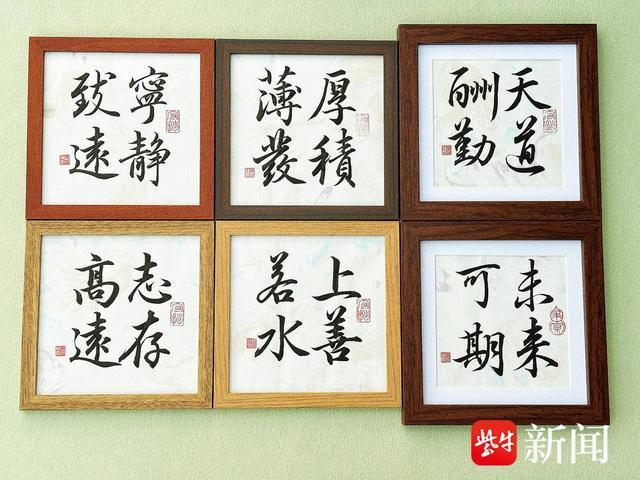 寧静
致遠
厚積
薄發
天道
酬勤
志存
髙遠
上善
若水
未来
可期
紫牛新闻